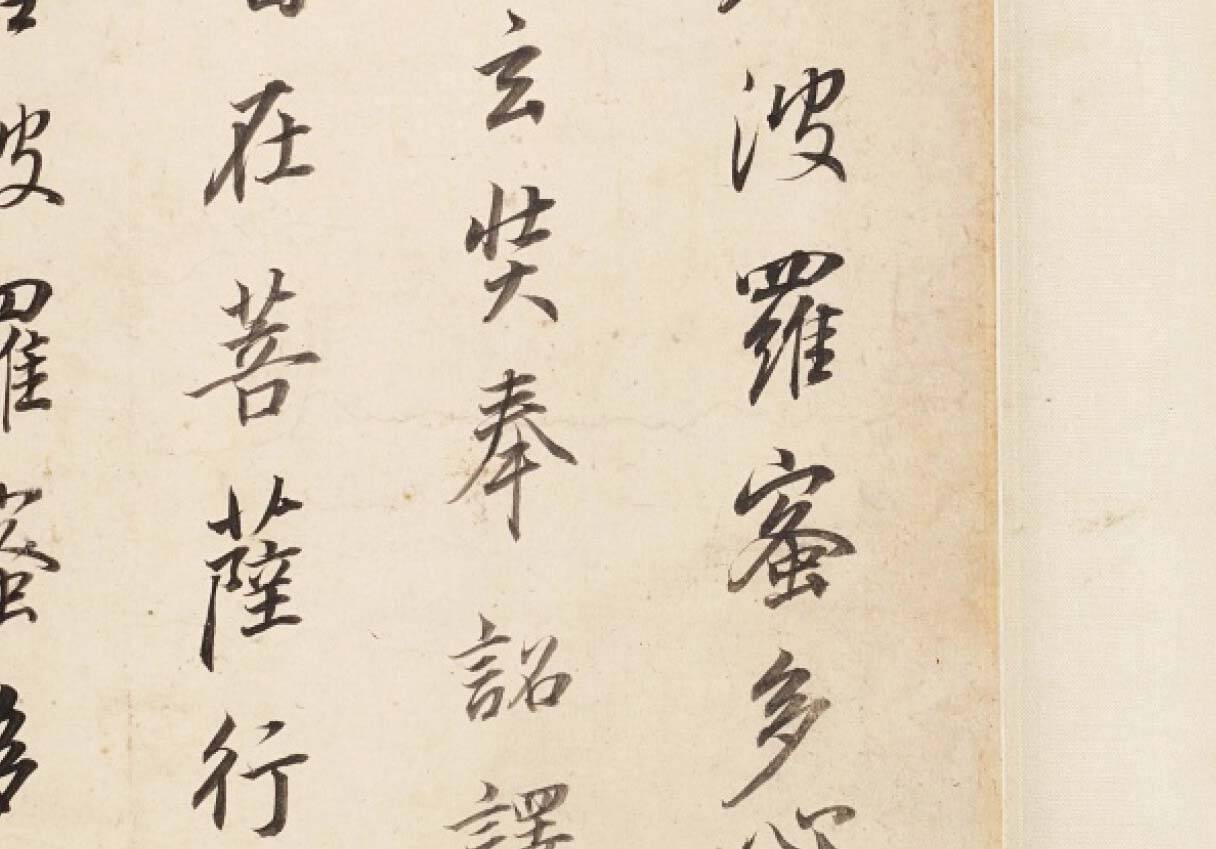 波羅蜜多心
玄奘奉詔譯
在菩薩行
波羅蜜多